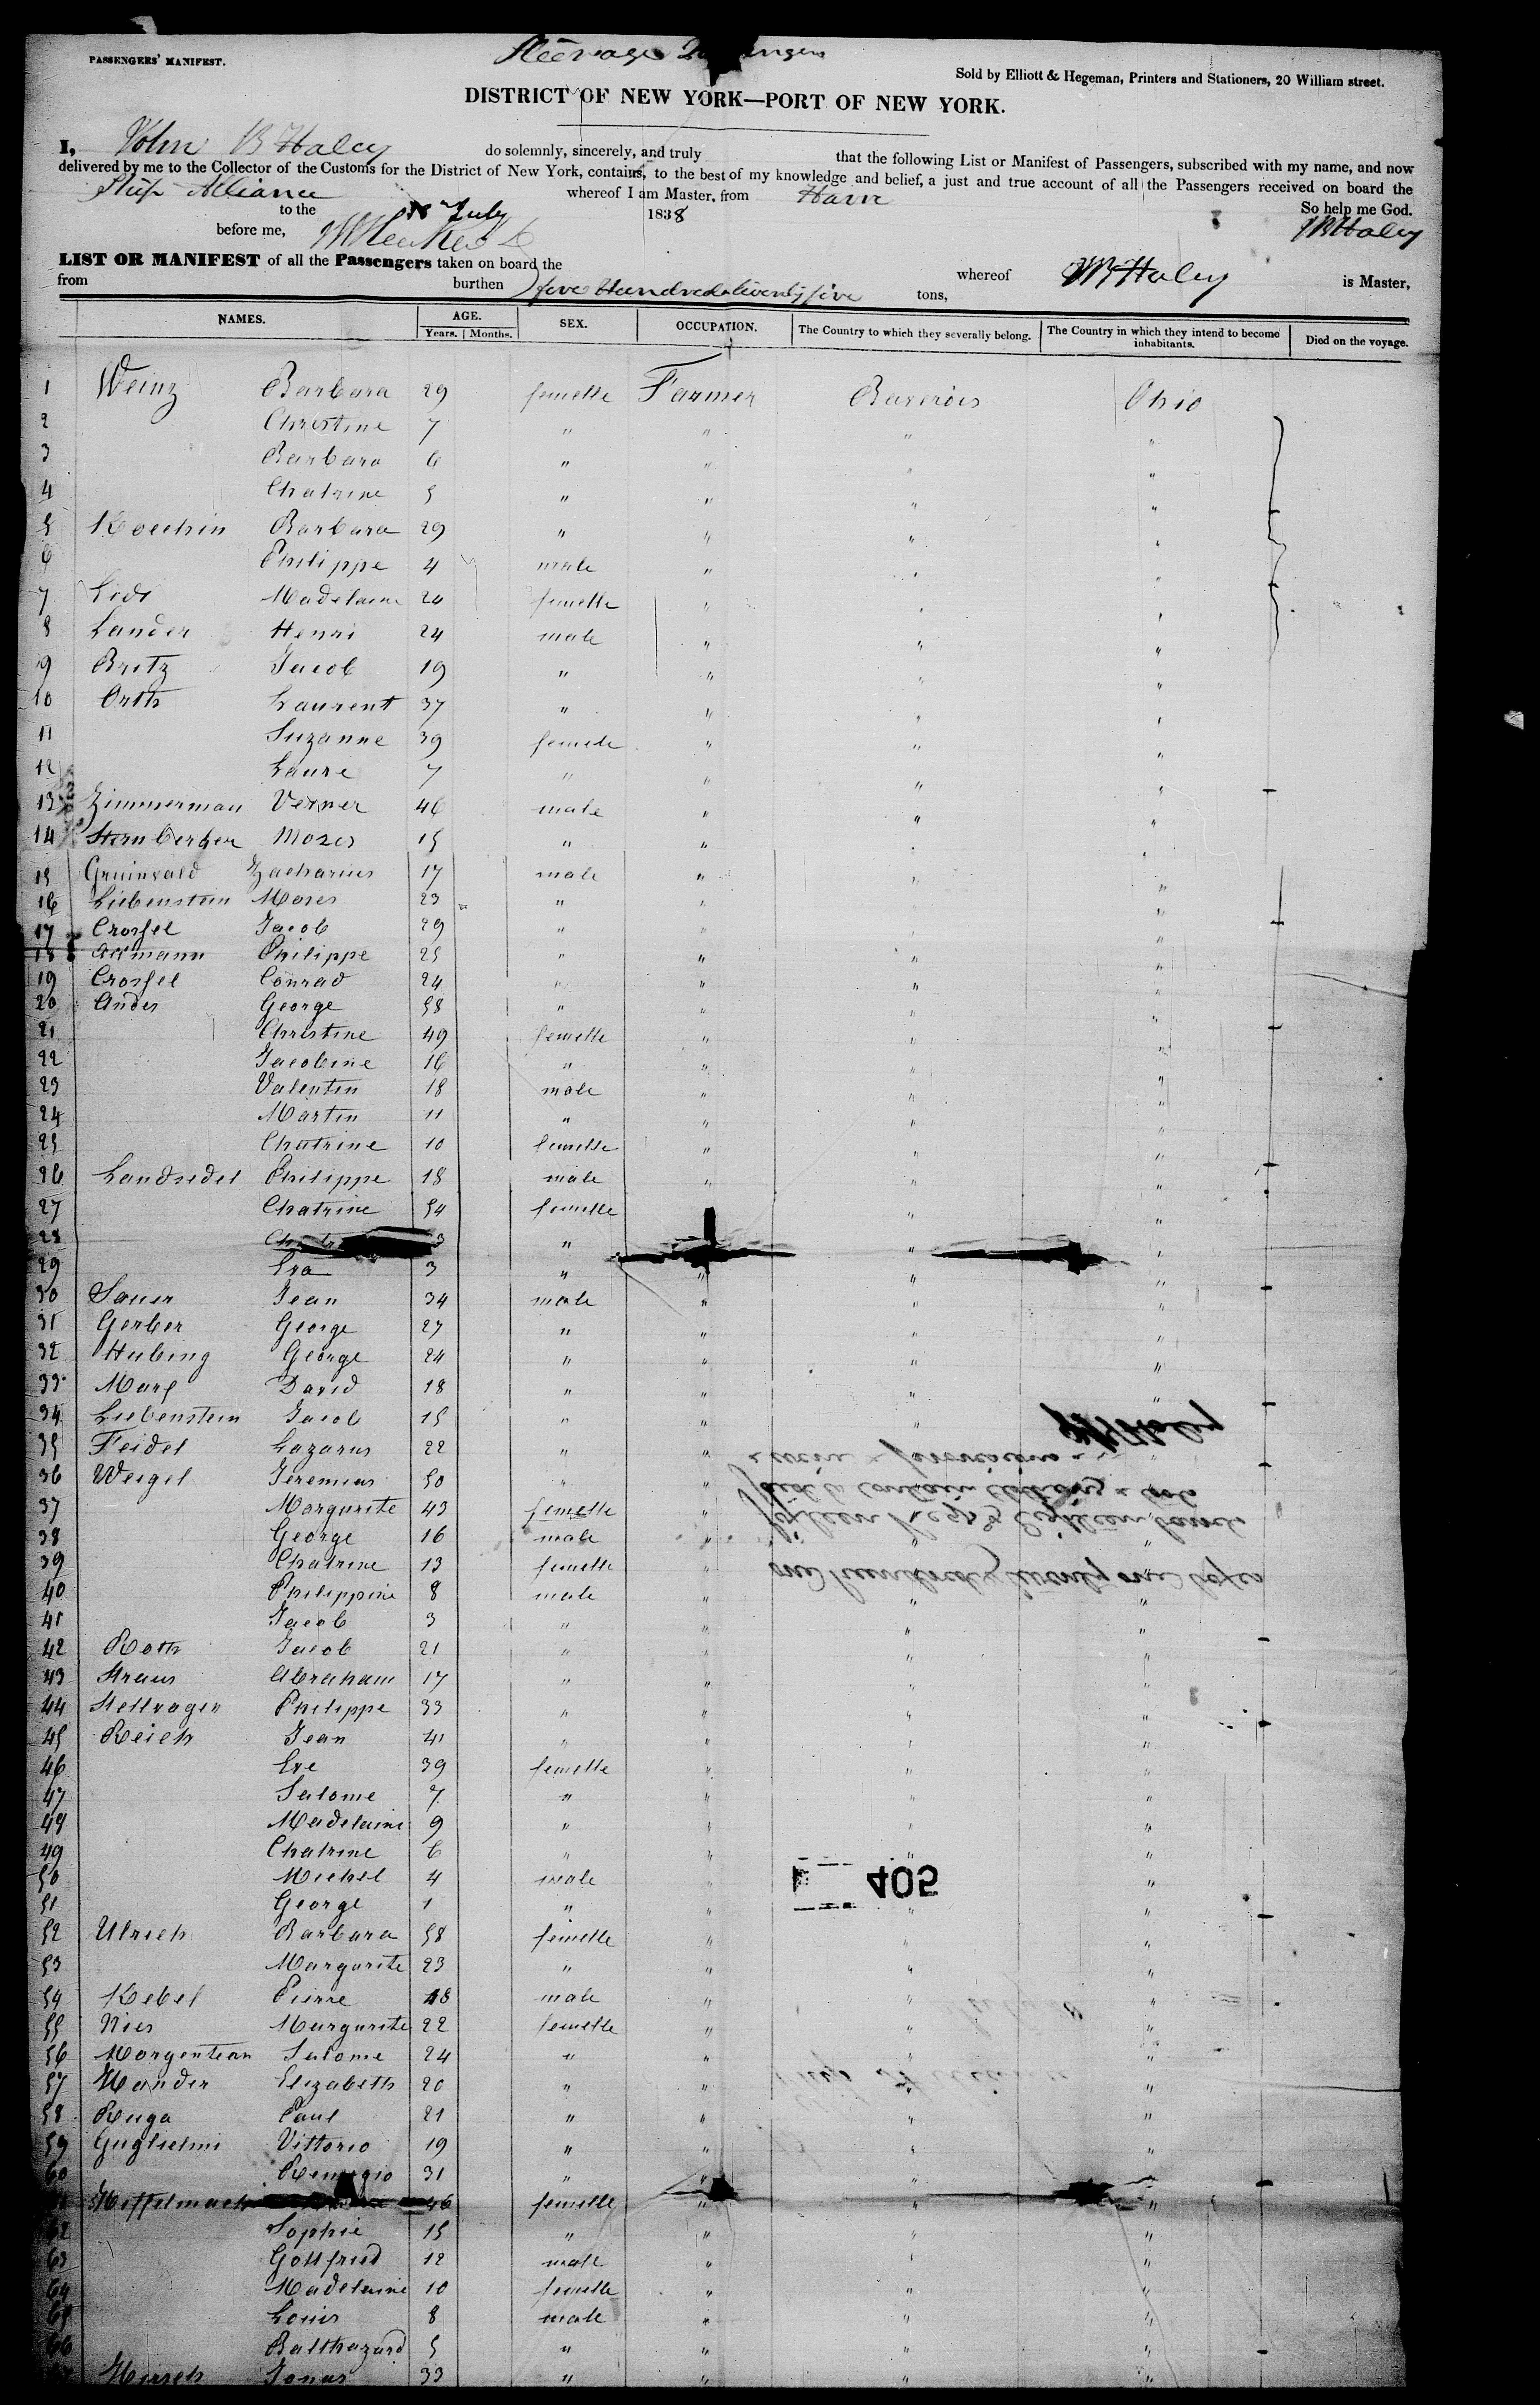 PASSENGERS' MANIFEST.
Steerage
Sold by Elliott & Hegeman, Printers and Stationers, 20 William street.
DISTRICT OF NEW YORK—PORT OF NEW YORK.
I, John B Haley do solemnly, sincerely, and truly that the following List or Manifest of Passengers, subscribed with my name, and now
delivered by me to the Collector of the Customs for the District of New York, contains, to the best of my knowledge and belief, a just and true account of all the Passengers received on board the
Ship Alliance whereof I am Master, from Havre
to the July 1838 So help me God.
before me, JB Haley
LIST OR MANIFEST of all the Passengers taken on board the whereof JB Haley is Master,
from burthen five Hundred twenty five tons,
NAMES. AGE. Years. Months. SEX. OCCUPATION. The Country to which they severally belong. The Country in which they intend to become inhabitants. Died on the voyage.
1 Weinz Barbara 29 femelle Farmer Baverois Ohio
2 Christine 7 " " " "
3 Barbara 6 " " " "
4 Chatrine 5 " " " "
5 Koechin Barbara 29 " " " "
6 Philippe 4 male " " "
7 Lidi Madelaine 24 femelle " " "
8 Lander Henri 24 male " " "
9 Britz Jacob 19 " " " "
10 Orth Laurent 37 " " " "
11 Suzanne 39 femele " " "
12 Laure 7 " " " "
13 Zimmerman Verner 46 male " " "
14 Sternberger Moses 15 " " " "
15 Gruinvald Zacharius 17 male " " "
16 Liebenstein Moses 23 " " " "
17 Crossel Jacob 29 " " " "
18 Philippe 25 " " " "
19 Crossel Conrad 24 " " " "
20 Andes George 58 " " " "
21 Christine 49 femelle " " "
22 Jacobine 16 " " " "
23 Valentin 18 male " " "
24 Martin 11 " " " "
25 Chatrine 10 femelle " " "
26 Landsidel Philippe 18 male " " "
27 Chatrine 54 femelle " " "
28 " " "
29 Eva 3 " " " "
30 Sauer Jean 34 male " " "
31 Gerber George 27 " " " "
32 Hubing George 24 " " " "
33 Marx David 18 " " " "
34 Liebenstein Jacob 15 " " "
35 Feidel Lazarus 22 " "
36 Weigel Jeremias 50 " "
37 Margurite 43 femelle "
38 George 16 male " " "
39 Chatrine 13 femelle "
40 Philippine 8 male " " "
41 Jacob 3 " " " "
42 Roth Jacob 21 " " " "
43 Straus Abraham 17 " " " "
44 Stellvagen Philippe 33 " " " "
45 Reich Jean 41 " " " "
46 Eve 39 femelle " " "
47 Salome 7 " " " "
48 Madelaine 9 " " " "
49 Chatrine 6 " " " "
50 Michel 4 male " "
51 George 1 " " " "
52 Ulrich Barbara 58 femelle " " "
53 Margurite 23 " " " "
54 Kebel Pierre 18 male " " "
55 Nies Margurite 22 femelle " " "
56 Salome 24 " " "
57 Hander Elizabeth 20 " " "
58 Ruga Paul 21 " " " "
59 Guglielmi Vittorio 19 " " " "
60 Remigio 31 " " " "
Heffelmach 46 femelle " " "
62 Sophie 15 " " "
63 Gottfried 12 male " " "
64 Madelaine 10 femelle " " "
65 Louis 8 male " " "
66 Balthazard 5 " " " "
Hirsch Jonas 33 " " " "
one hundred & twenty one boxes
fifteen Kegs & Eighteen
said to contain clothing
JB Haley
405